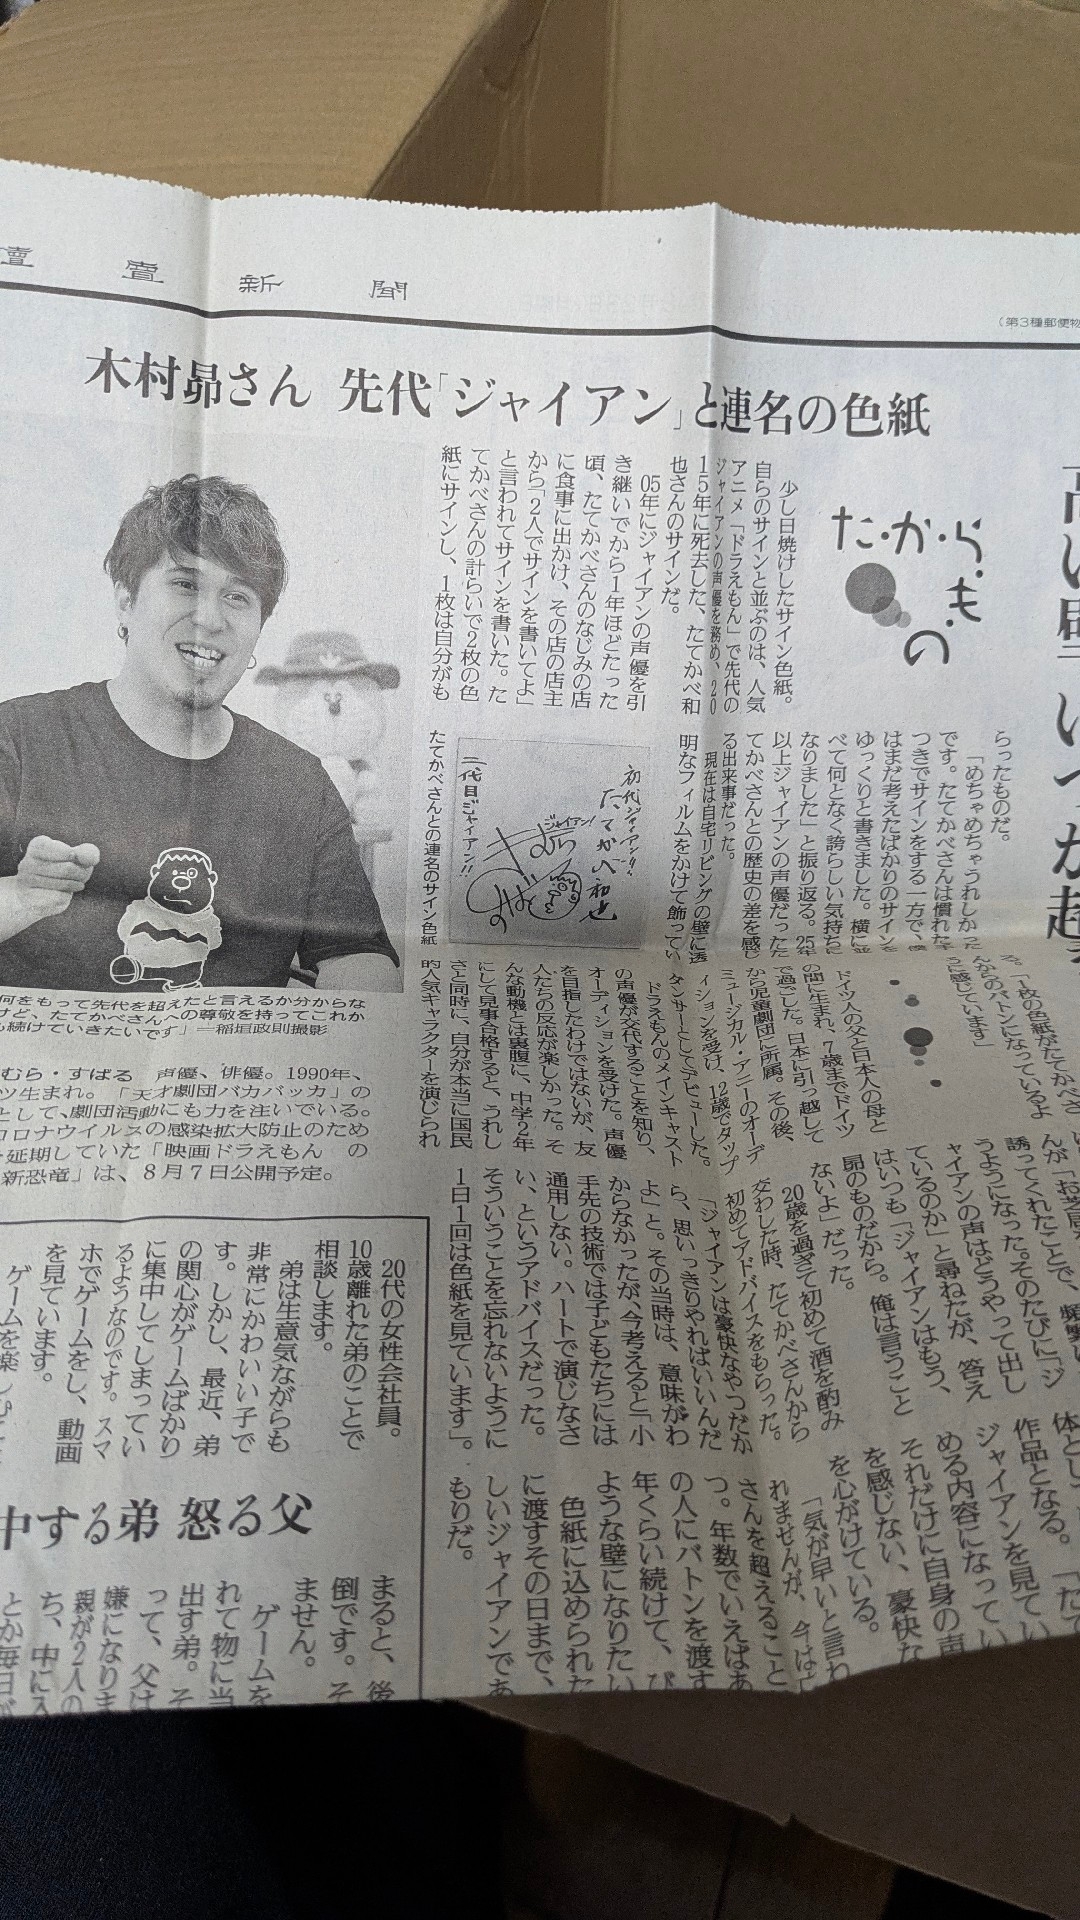 讀賣新聞
(第3種郵便物
木村昴さん 先代「ジャイアン」と連名の色紙
た・か・ら・も・の
少し日焼けしたサイン色紙。
自らのサインと並ぶのは、人気
アニメ「ドラえもん」で先代の
ジャイアンの声優を務め、20
15年に死去した、たてかべ和
也さんのサインだ。
05年にジャイアンの声優を引
き継いでから1年ほどたった
頃、たてかべさんのなじみの店
に食事に出かけ、その店の店主
から「2人でサインを書いてよ」
と言われてサインを書いた。た
てかべさんの計らいで2枚の色
紙にサインし、1枚は自分がも
らったものだ。
「めちゃめちゃうれしかった
です。たてかべさんは慣れた手
つきでサインをする一方で、僕
はまだ考えたばかりのサインを
ゆっくりと書きました。横に並
べて何となく誇らしい気持ちに
なりました」と振り返る。25年
以上ジャイアンの声優だったた
てかべさんとの歴史の差を感じ
る出来事だった。
現在は自宅リビングの壁に透
明なフィルムをかけて飾ってい
る。「1枚の色紙がたてかべさ
んからのバトンになっているよ
うに感じています」
初代ジャイアン!!
たてかべ和也
ジャイアン!
きむらすばる
二代目ジャイアン!!
たてかべさんとの連名のサイン色紙
何をもって先代を超えたと言えるか分からな
けど、たてかべさんへの尊敬を持ってこれか
も続けていきたいです」―稲垣政則撮影
むら・すばる 声優、俳優。1990年、
ツ生まれ。「天才劇団バカバッカ」の
として、劇団活動にも力を注いでいる。
コロナウイルスの感染拡大防止のため
延期していた「映画ドラえもん の
新恐竜」は、8月7日公開予定。
ドイツ人の父と日本人の母と
の間に生まれ、7歳までドイツ
で過ごした。日本に引っ越して
から児童劇団に所属。その後、
ミュージカル・アニーのオーデ
ィションを受け、12歳でタップ
ダンサーとしてデビューした。
ドラえもんのメインキャスト
の声優が交代することを知り、
オーディションを受けた。声優
を目指したわけではないが、友
人たちの反応が楽しかった。そ
んな動機とは裏腹に、中学2年
にして見事合格すると、うれし
さと同時に、自分が本当に国民
的人気キャラクターを演じられ
んが「お芝居
誘ってくれたことで、頻繁に
うようになった。そのたびに「ジ
ャイアンの声はどうやって出し
ているのか」と尋ねたが、答え
はいつも「ジャイアンはもう、
昴のものだから。俺は言うこと
ないよ」だった。
20歳を過ぎて初めて酒を酌み
交わした時、たてかべさんから
初めてアドバイスをもらった。
「ジャイアンは豪快なやつだか
ら、思いっきりやればいいんだ
よ」と。その当時は、意味がわ
からなかったが、今考えると「小
手先の技術では子どもたちには
通用しない。ハートで演じなさ
い、というアドバイスだった。
そういうことを忘れないように
1日1回は色紙を見ています」。
体とし
作品となる。「た
ジャイアンを見てい
める内容になってい
それだけに自身の声
を感じない、豪快な
を心がけている。
「気が早いと言わ
れませんが、今は
さんを超えること
つ。年数でいえばあ
の人にバトンを渡す
年くらい続けて、
ような壁になりたい
色紙に込められた
に渡すその日まで、
しいジャイアンであ
もりだ。
20代の女性会社員。
10歳離れた弟のことで
相談します。
弟は生意気ながらも
非常にかわいい子で
す。しかし、最近、弟
の関心がゲームばかり
に集中してしまってい
るようなのです。スマ
ホでゲームをし、動画
を見ています。
ゲームを楽しむこと
中する弟 怒る父
まると、後
倒です。そ
ません。
ゲームを
れて物に当
出す弟。そ
って、父は
嫌になりま
親が2人の
ち、中に入
とか毎日が